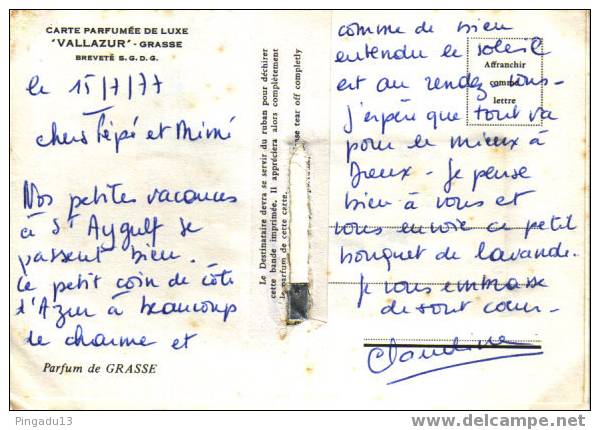 CARTE PARFUMÉE DE LUXE
"VALLAZUR" - GRASSE
BREVETÉ S.G.D.G.
le 15/7/77
chers Pépé et Mimi
Nos petites vacances
à St Aygulf se
passent bien.
Ce petit coin de côte
d'Azur a beaucoup
de charme et
Parfum de GRASSE
Le Destinataire devra se servir du ruban pour déchirer
cette bande imprimée. Il appréciera alors complètement
le parfum de cette carte.
tear off completly
comme de bien
entendu le soleil
est au rendez-vous-
j'espère que tout va
pour le mieux à
Dreux - Je pense
bien à vous et
vous envoie ce petit
bouquet de lavande.
Je vous embrasse
de tout cœur-
Claudine
Affranchir
comme
lettre
Pingadu13
www.delcampe.net